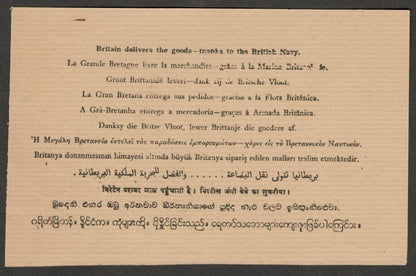 Britain delivers the goods—tnanks to the British Navy.
La Grande Bretagne livre la marchandise—grâce à la Marine Britan
Groot Brittannië levert—dank zij de Britsche Vloot.
La Gran Bretana entrega sus pedidos—gracias a la Flota Británica.
A Grã-Bretanha entrega a mercadoria—graças à Armada Britânica.
Dankay die Britse Vloot, lewer Brittanje die goedere af.
Ἡ Μεγάλη Βρεταννία ἐκτελεῖ τὰς παραδόσεις ἐμπορευμάτων—χάρις εἰς τὸ Βρεταννικὸν Ναυτικόν.
Britanya donanmasının himayesi altında büyük Britanya sipariş edilen malları teslim etmektedir.
بريطانيا تتولى نقل البضاعة ...... والفضل للبحرية الملكية البريطانية.
ब्रिटेन बराबर माल पहुंचाती है। ब्रिटीस जंगी बेडे का सुकरीया।